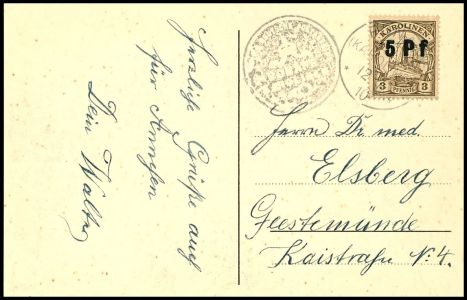 Herzliche Grüße auch
für Annchen
Dein Walter
KAROLINEN
5 Pf
3 PFENNIG 3
12
10
Herrn Dr. med.
Elsberg
Geestemünde
Kaistraße No. 4.